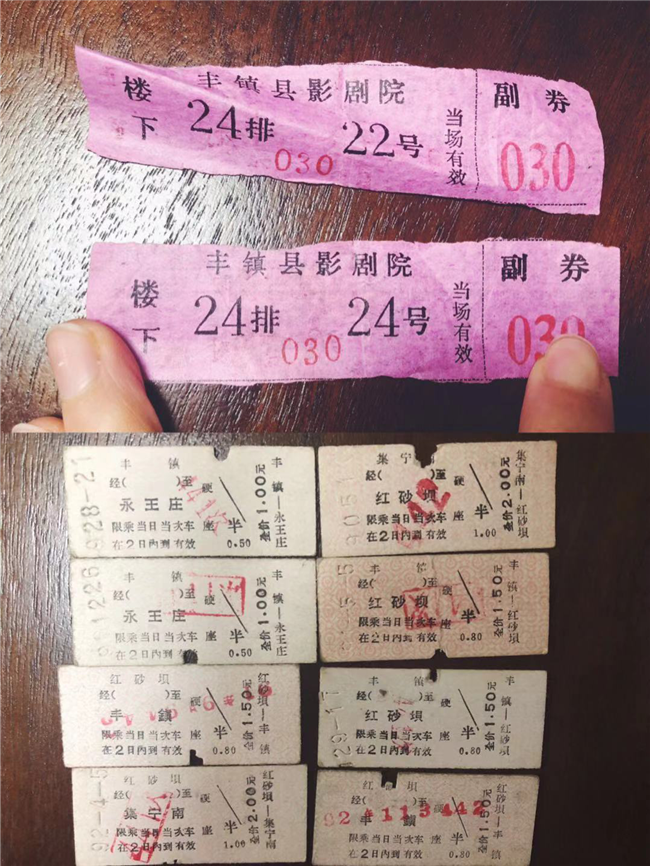 丰镇县影剧院
楼下 24排 22号
030
当场有效
副券
030
丰镇县影剧院
楼下 24排 24号
030
当场有效
副券
030
928-21
丰镇
经( )至
永王庄
硬座
半
限乘当日当次车
在2日内到有效
0.50
全价1.00元
丰镇—永王庄
集宁
经( )至
红砂坝
硬座
半
限乘当日当次车
在2日内到有效
1.00
全价2.00元
集宁南—红砂坝
丰镇
经( )至
永王庄
硬座
半
限乘当日当次车
在2日内到有效
0.50
全价1.00元
丰镇—永王庄
经( )至
红砂坝
硬座
半
限乘当日当次车
在2日内到有效
0.80
全价1.50元
丰镇—红砂坝
红砂坝
经( )至
丰鎮
硬座
半
限乘当日当次车
在2日内到有效
0.80
全价1.50元
红砂坝—丰镇
丰镇
经( )至
红砂坝
硬座
半
限乘当日当次车
在2日内到有效
0.80
全价1.50元
丰镇—红砂坝
92-4-5
红砂坝
经( )至
集宁南
硬座
半
限乘当日当次车
在2日内到有效
1.00
全价2.00元
红砂坝—集宁南
红砂坝
经( )至
丰鎮
硬座
半
限乘当日当次车
在2日内到有效
0.80
全价1.50元
红砂坝—丰镇